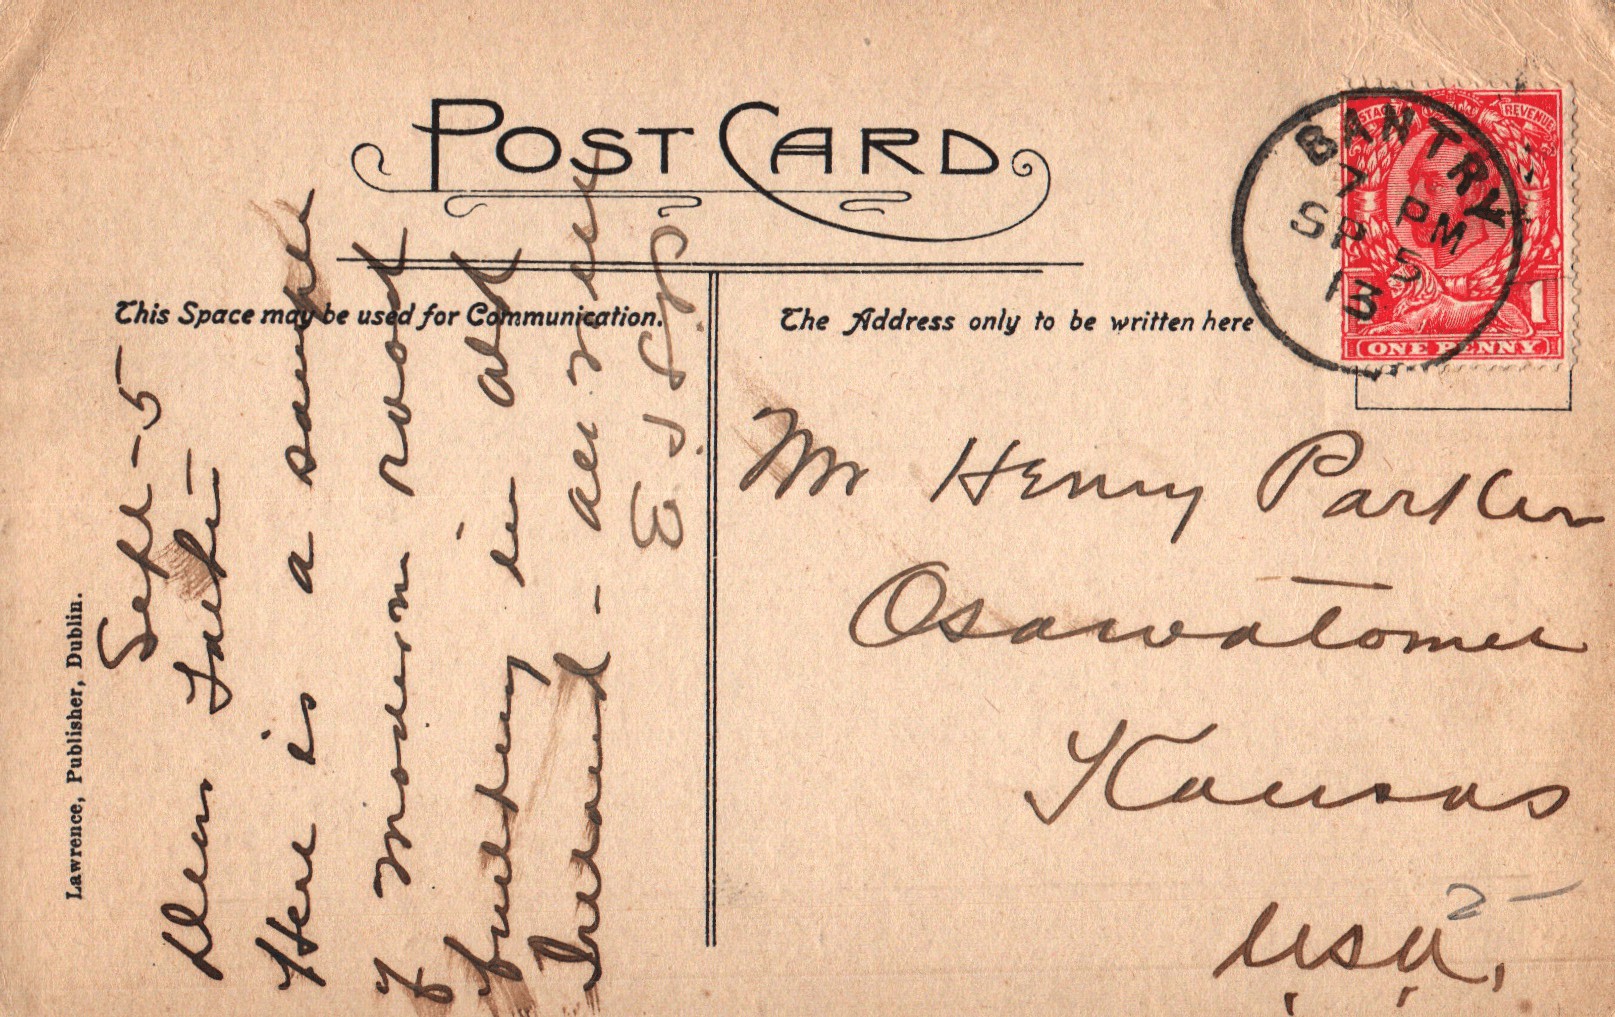 POST CARD
This Space may be used for Communication.
The Address only to be written here
BANTRY
7 PM
SP 5
13
POSTAGE REVENUE
ONE PENNY
1
Lawrence, Publisher, Dublin.
Sept - 5
Dear
Here is a sample
of modern road
building in old
Ireland - all well
Mr Henry Parker
Osawatomie
Kansas
U.S.A.
2 -